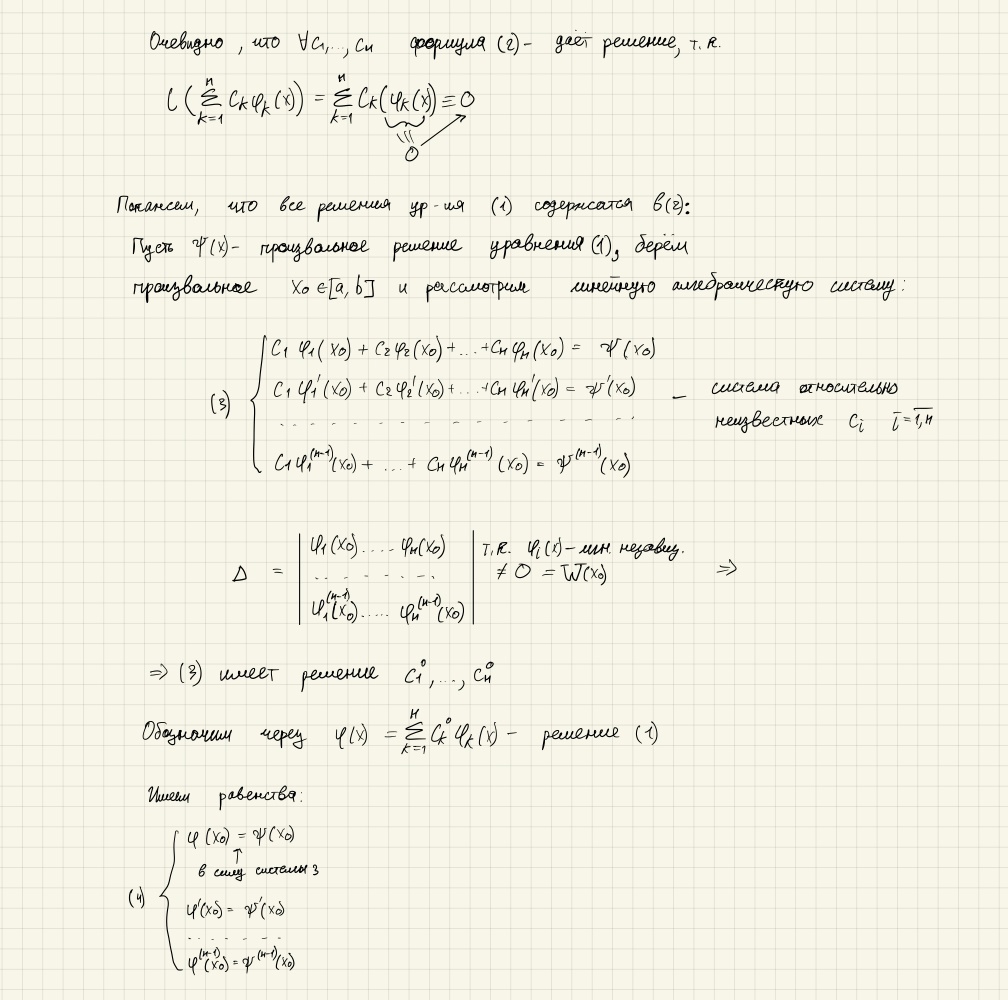 Очевидно, что ∀C₁,...,Cₙ формула (2) - даёт решение, т.к.
L(∑ₖ₌₁ⁿ Cₖφₖ(x)) = ∑ₖ₌₁ⁿ Cₖ(φₖ(x)) ≡ 0
≡
0
Покажем, что все решения ур-ия (1) содержатся в (2):
Пусть ψ(x) - произвольное решение уравнения (1), берём
произвольное x₀ ∈ [a, b] и рассмотрим линейную алгебраическую систему:
C₁φ₁(x₀) + C₂φ₂(x₀) + ... + Cₙφₙ(x₀) = ψ(x₀)
(3) C₁φ₁'(x₀) + C₂φ₂'(x₀) + ... + Cₙφₙ'(x₀) = ψ'(x₀) — система относительно
неизвестных Cᵢ i = 1,n
. . . . . . . . . . . .
C₁φ₁⁽ⁿ⁻¹⁾(x₀) + ... + Cₙφₙ⁽ⁿ⁻¹⁾(x₀) = ψ⁽ⁿ⁻¹⁾(x₀)
φ₁(x₀) .... φₙ(x₀) т.к. φᵢ(x) - лин. незавиз.
Δ = . . . . . . . . ≠ 0 = W(x₀) ⇒
φ₁⁽ⁿ⁻¹⁾(x₀) ..... φₙ⁽ⁿ⁻¹⁾(x₀)
⇒ (3) имеет решение C₁⁰,..., Cₙ⁰
Обозначим через φ(x) = ∑ₖ₌₁ⁿ Cₖ⁰φₖ(x) - решение (1)
Имеем равенства:
φ(x₀) = ψ(x₀)
↑
в силу системы 3
(4)
φ'(x₀) = ψ'(x₀)
. . . . . . .
φ⁽ⁿ⁻¹⁾(x₀) = ψ⁽ⁿ⁻¹⁾(x₀)